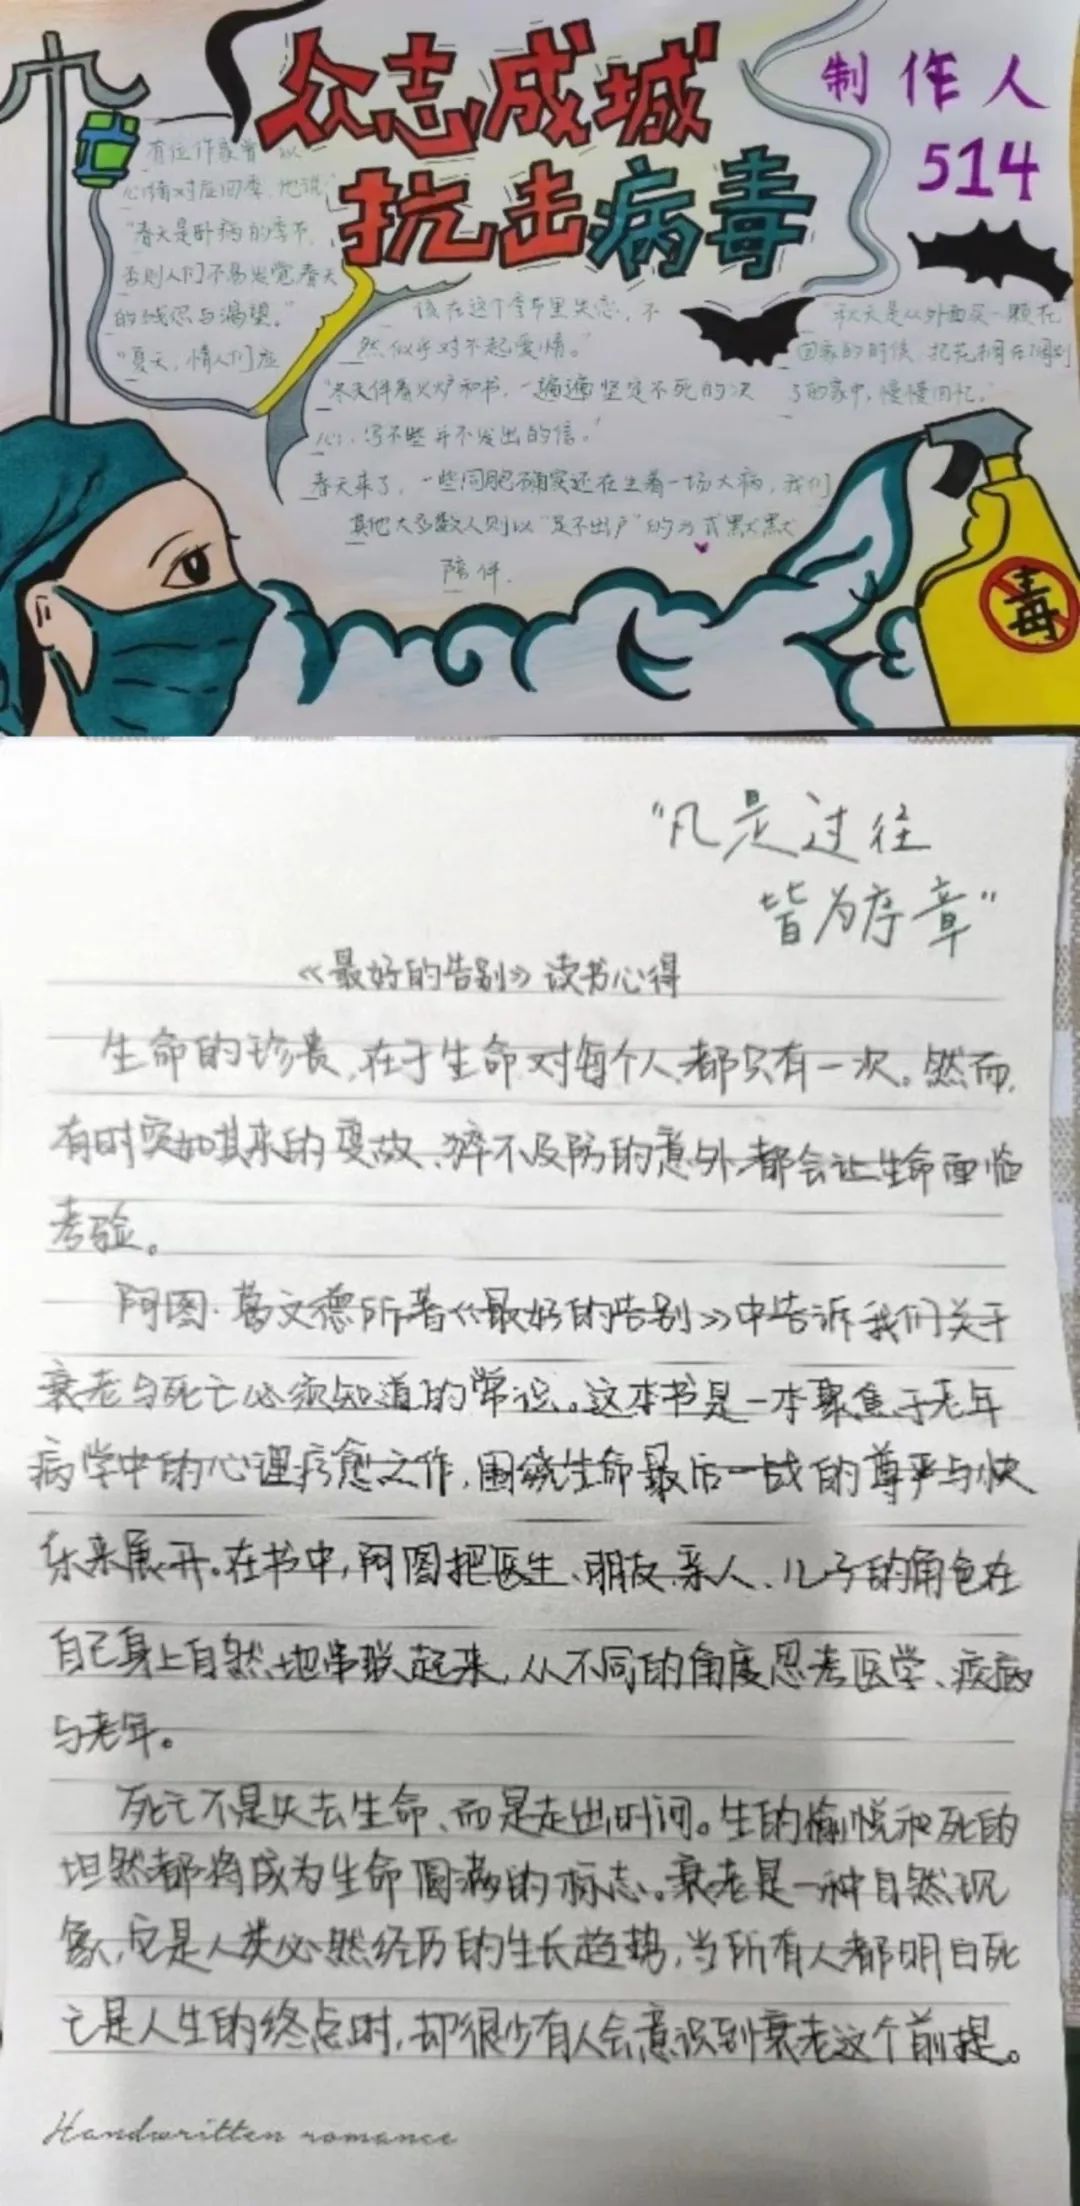 众志成城
抗击病毒
制作人
514
有位作家曾以
心情对应四季，他说：
“春天是卧病的季节，
否则人们不易发觉春天
的残忍与渴望。”
“夏天，情人们应
该在这个季节里失恋，不
然似乎对不起爱情。”
“秋天是从外面买一颗花
回家的时候，把花搁在
了的家中，慢慢回忆。
“冬天伴着火炉和书，一遍遍坚定不死的决
心，写不些并不发出的信。”
春天来了，一些同胞确实还在生着一场大病，我们
其他大多数人则以“足不出户”的方式默默
陪伴。
毒
“凡是过往
皆为序章”
《最好的告别》读书心得
生命的珍贵，在于生命对每个人都只有一次。然而，
有时突如其来的变故、猝不及防的意外，都会让生命面临
考验。
阿图·葛文德所著《最好的告别》中告诉我们关于
衰老与死亡必须知道的常识。这本书是一本聚焦于老年
病学中的心理疗愈之作，围绕生命最后一战的尊严与快
乐来展开。在书中，阿图把医生、朋友、亲人、儿子的角色在
自己身上自然地串联起来，从不同的角度思考医学、疾病
与老年。
死亡不是失去生命，而是走出时间。生的愉悦和死的
坦然都将成为生命圆满的标志。衰老是一种自然现
象，它是人类必然经历的生长趋势，当所有人都明白死
亡是人生的终点时，却很少有人会意识到衰老这个前提。
Handwritten romance